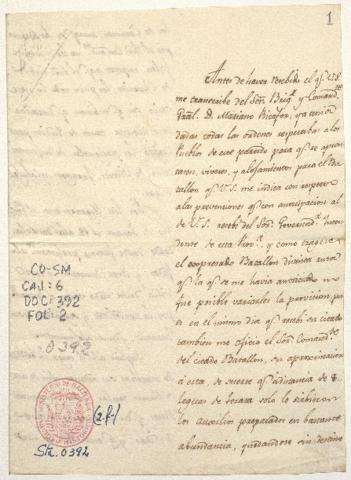 1
Antes de haver recibido el qe. V.S.
me transcribe del Sor. Brigr. y Comandte.
Gral. D. Mariano Ricafort, ya tenia
dadas todas las ordenes respectibas a los
Pueblos de este partido para qe. se apron
tasen, viveres, y alojamientos para el Ba
tallon qe. V.S. me indica con respecto
a las prevenciones qe. con anticipacion al
de V.S. recibi del Sor. Governr. Inten
dente de esta Prova. y como
el expresado Batallon
qe. la qe. se me havia anticipado no
fue posible variarles la
es en el mismo dia qe. recibi su citado
tambien me oficio el Sor. Comandte.
del citado Batallon, su aproximacion
a esta, de suerte qe. a distancia de 8
leguas de solo le
los auxilios preparados en bastante
abundancia, quedandose sin destino
CO-SM
CAJ: 6
DOC: 392
FOL: 2
0392
(2f.)
Str. 0392